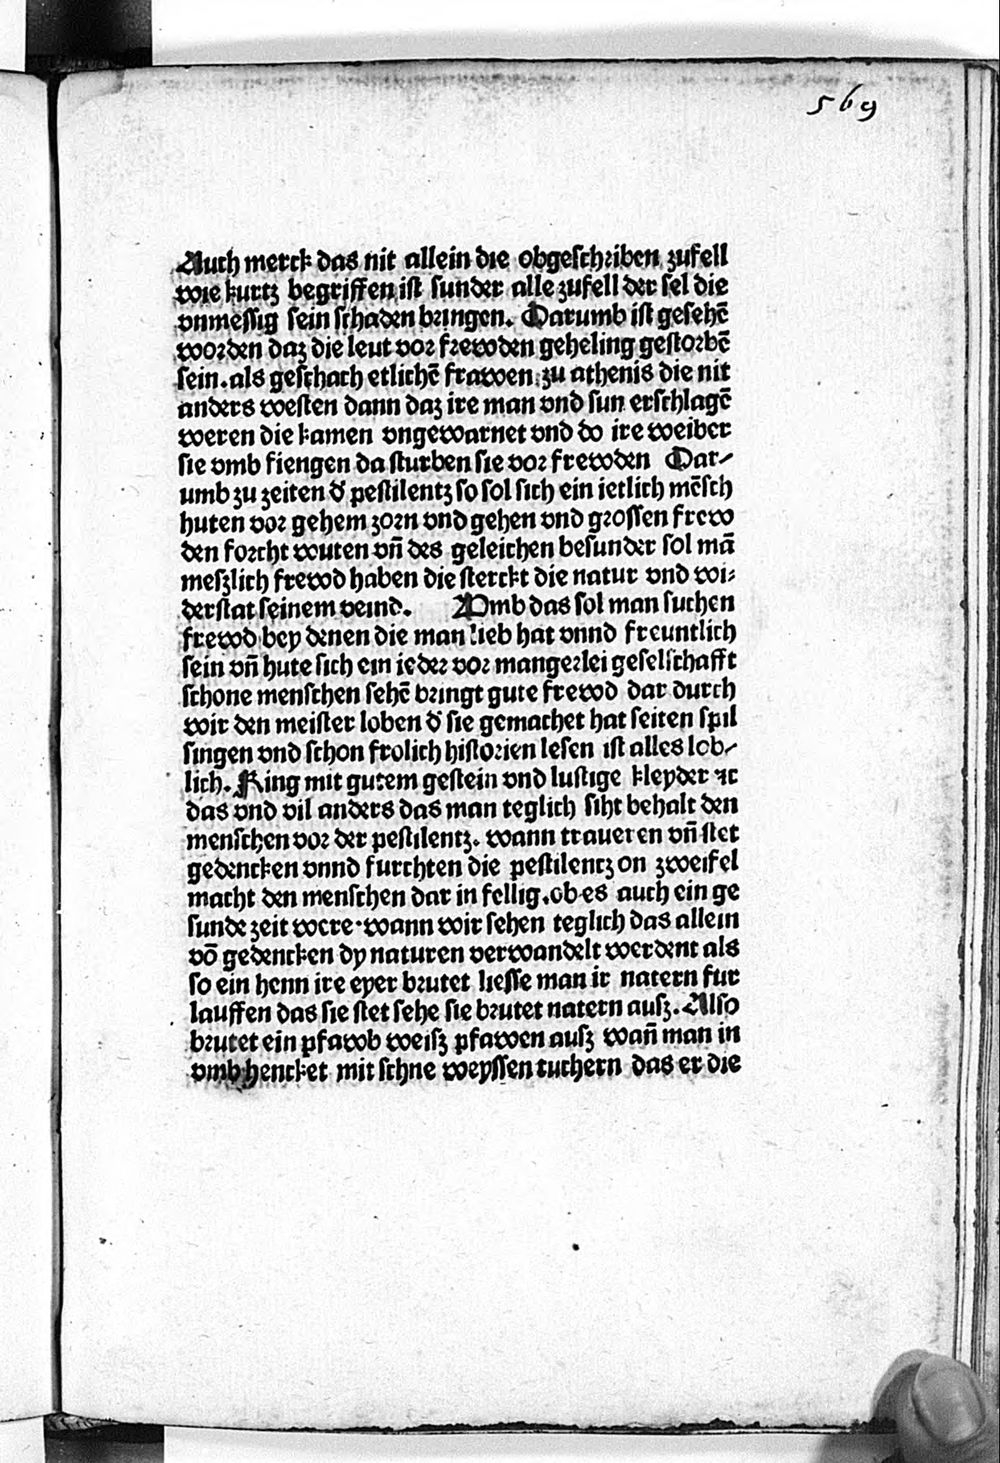 569
Auch merck das nit allein die obgeschriben zufell
wie kurtz begriffen ist sunder alle zufell der sel die
vnmessig sein schaden bringen. Darumb ist gesehē
worden daz die leut vor frewden geheling gestorbē
sein. als geschach etlichē frawen zu athenis die nit
anders westen dann daz ire man vnd sun erschlagē
weren die kamen vngewarnet vnd do ire weiber
sie vmb fiengen da sturben sie vor frewden Dar⸗
umb zu zeiten d' pestilentz so sol sich ein ietlich mēsch
huten vor gehem zorn vnd gehen vnd grossen frew
den forcht wuten vn̄ des geleichen besunder sol mā
meszlich frewd haben die sterckt die natur vnd wi⸗
derstat seinem veind. Umb das sol man suchen
frewd bey denen die man lieb hat vnnd freuntlich
sein vn̄ hute sich ein ieder vor mangerlei geselschafft
schone menschen sehē bringt gute frewd dar durch
wir den meister loben d' sie gemachet hat seiten spil
singen vnd schon frolich historien lesen ist alles lob⸗
lich. Ring mit gutem gestein vnd lustige kleyder ⁊c
das vnd vil anders das man teglich siht behalt den
menschen vor der pestilentz. wann traueren vn̄ stet
gedencken vnnd furchten die pestilentz on zweifel
macht den menschen dar in fellig. ob es auch ein ge
sunde zeit were. wann wir sehen teglich das allein
vō gedencken dy naturen verwandelt werdent als
so ein henn ire eyer brutet liesse man ir natern fur
lauffen das sie stet sehe sie brutet natern ausz. Also
brutet ein pfawb weisz pfawen ausz wan̄ man in
vmb hencket mit schne weyssen tuchern das er die